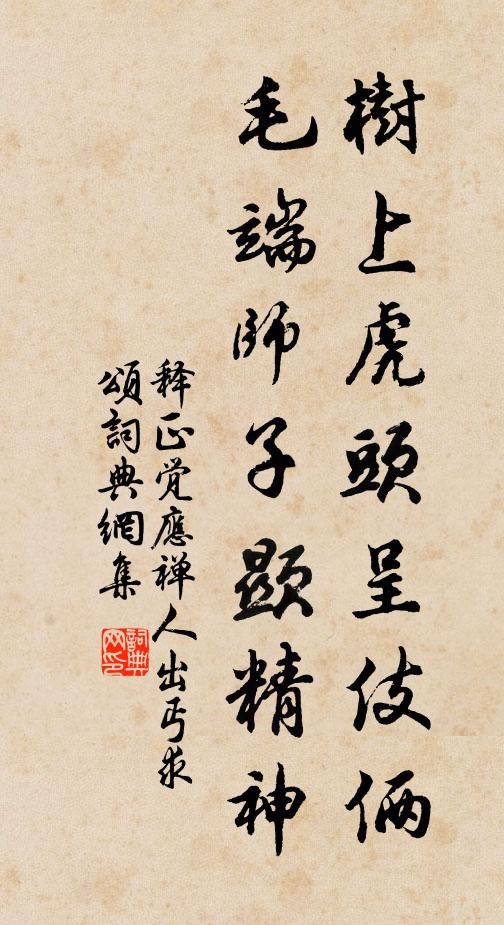 樹上虎頭呈伎倆
毛端師子顯精神
释正觉應禅人出丐求
頌詞典網集
詞典网印